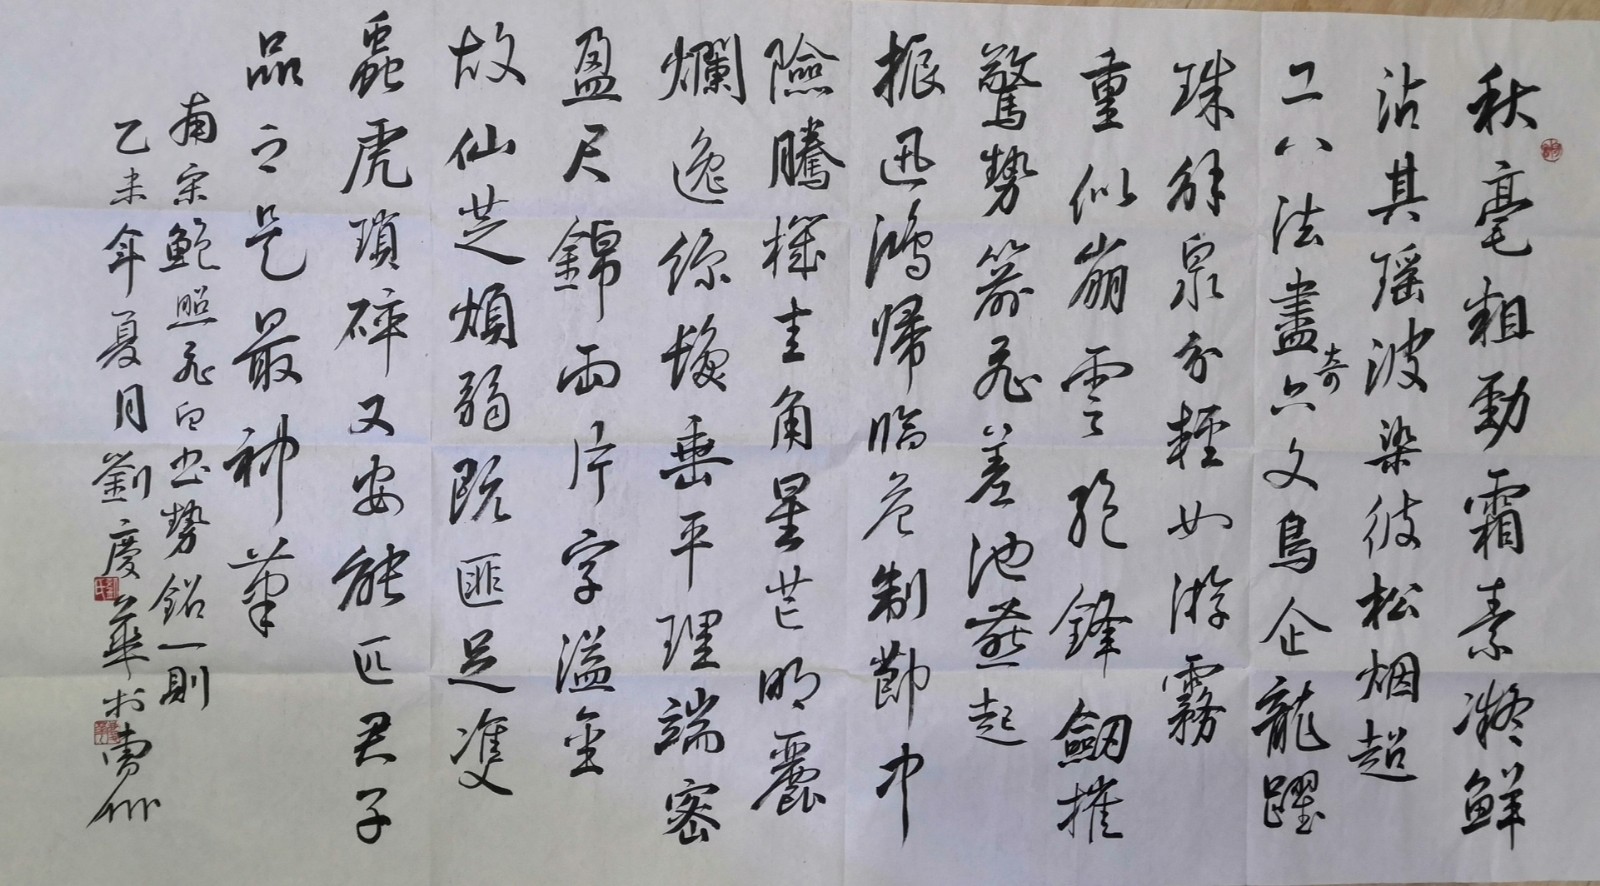 秋毫粗勁霜素凝鮮
沾其瑶波染彼松烟超
工八法盡奇六文鳥企龍躍
珠解泉分輕如游霧
重似崩雲絶鋒劒摧
驚勢箭飛差池燕起
振迅鴻歸臨危制節中
險騰機圭角星芒明麗
爛逸絲髮垂平理端密
盈尺錦兩片字溢金
故仙芝煩弱既匪足雙
蟲虎瑣碎又安能匹君子
品之是最神筆
南宋鮑照飛白书勢銘一則
乙未年夏月劉慶華於曹州